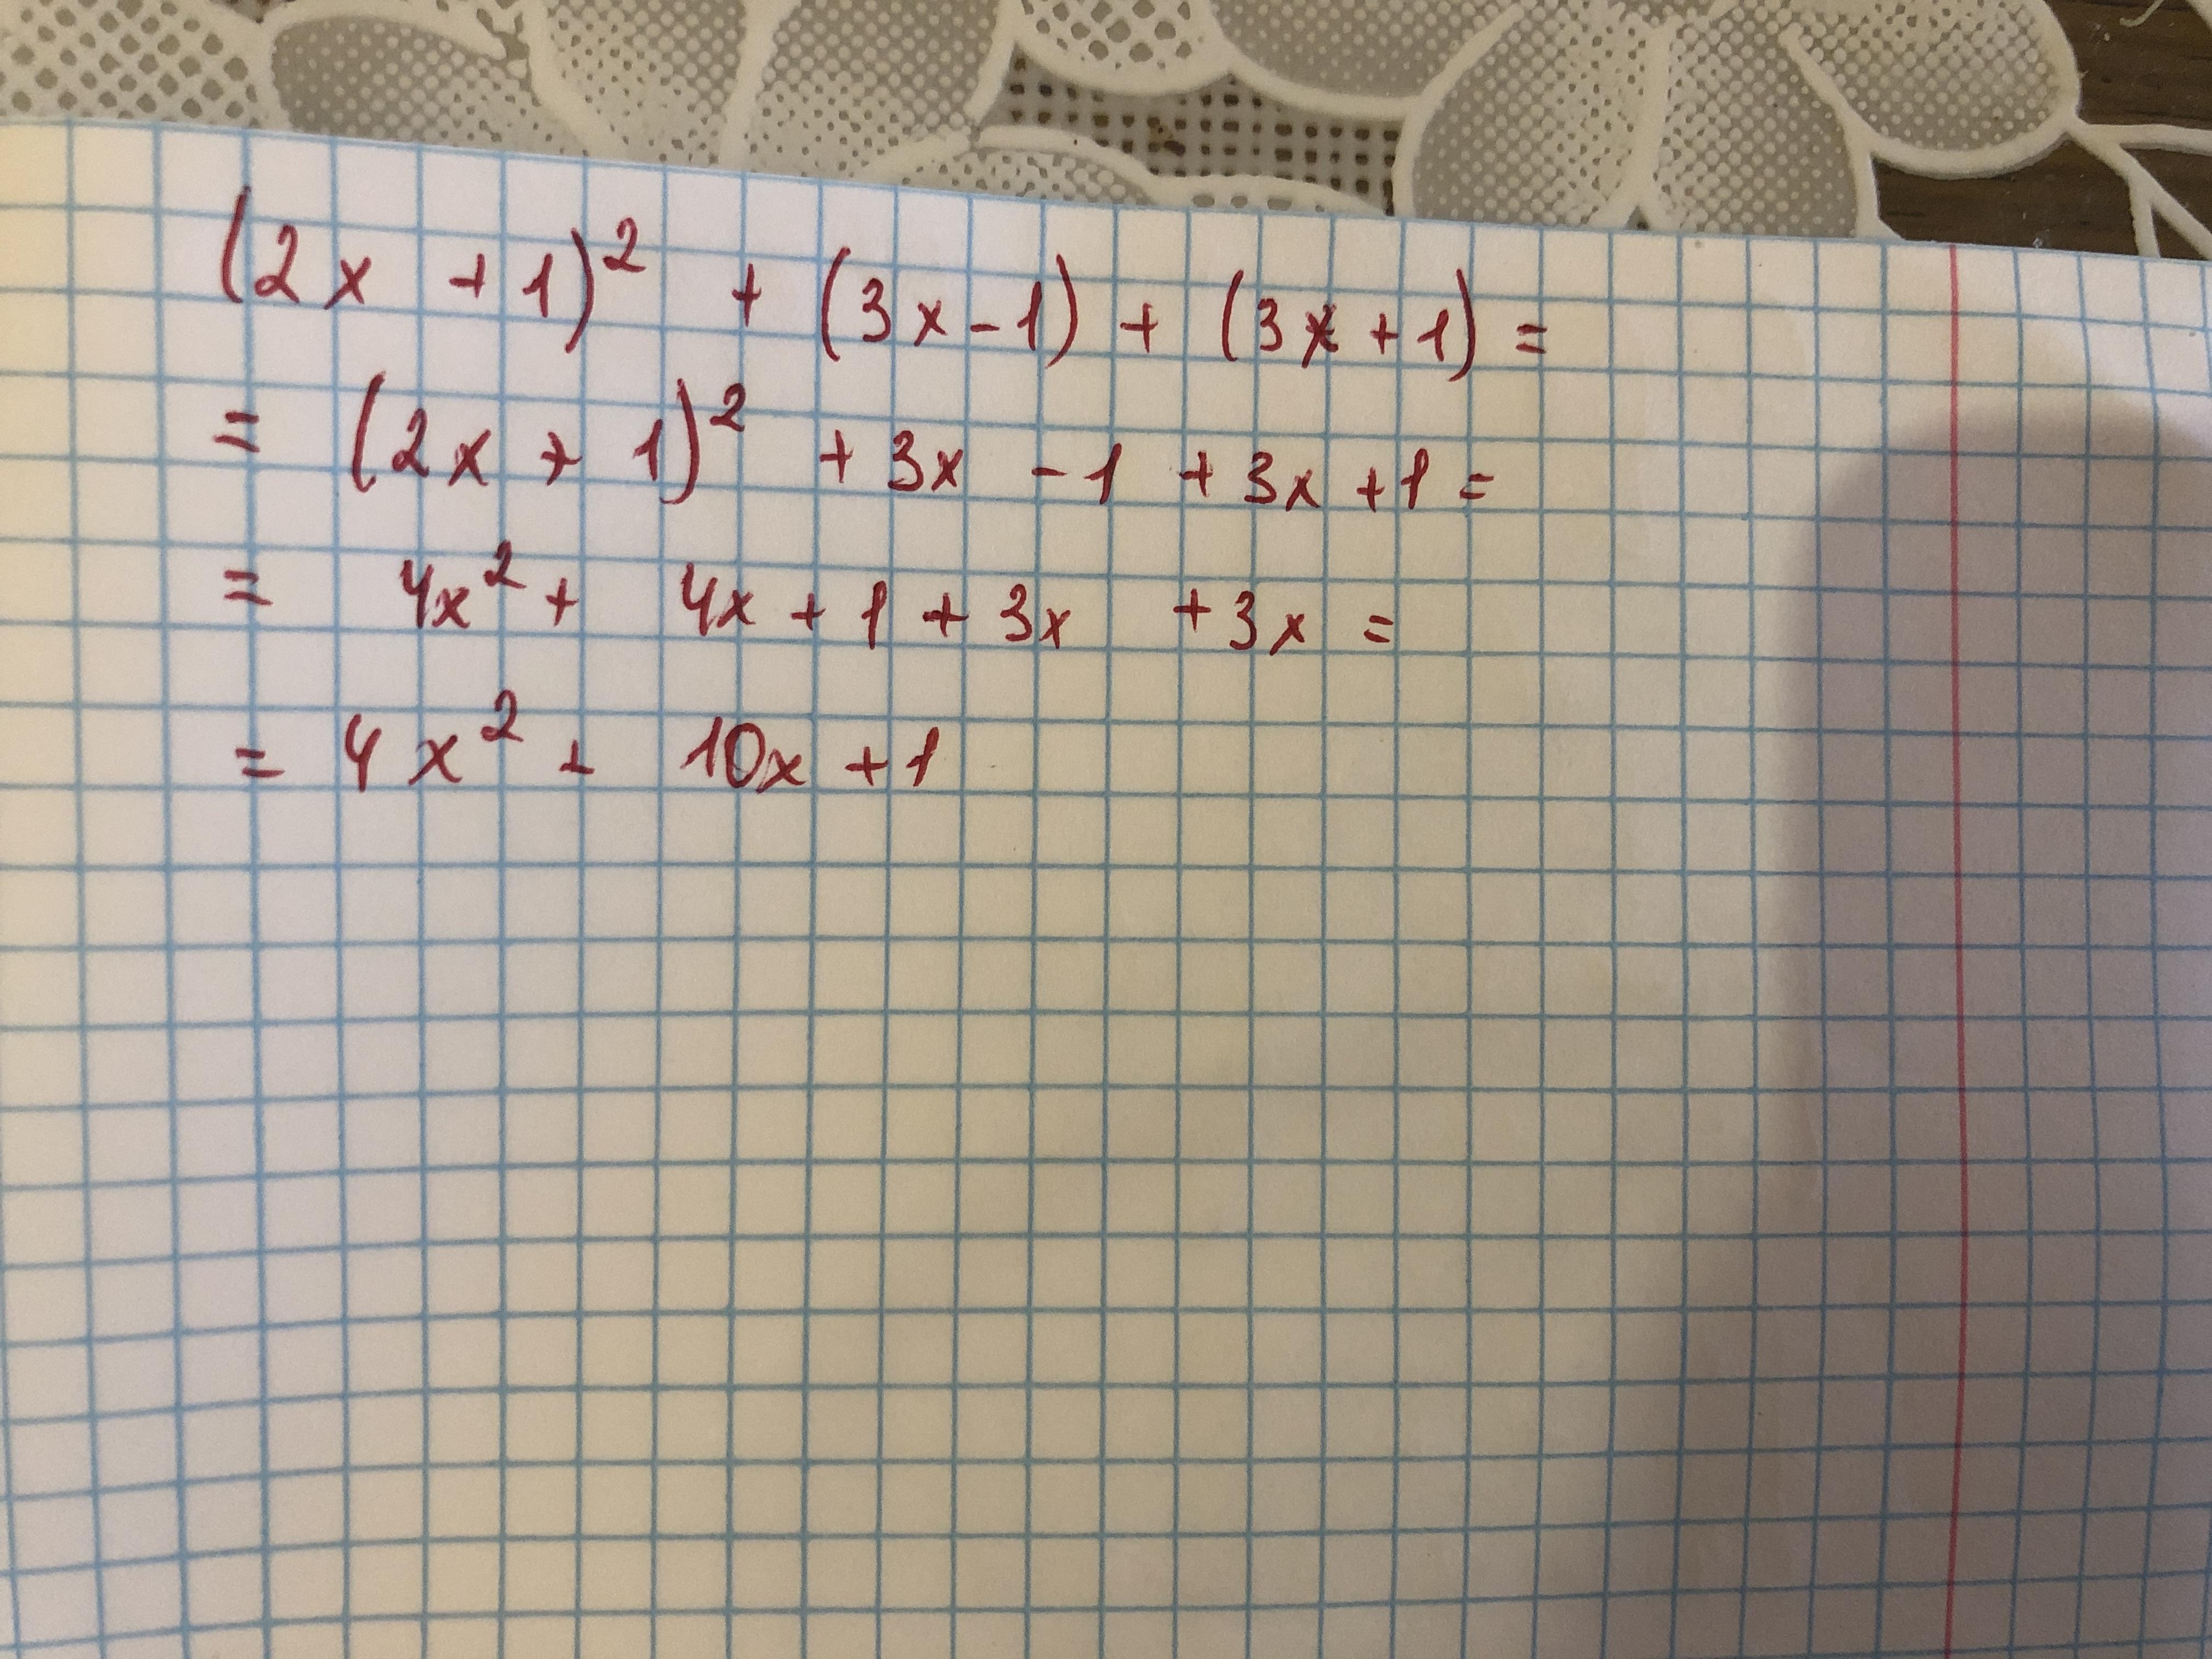 (2x + 1)² + (3x - 1) + (3x + 1) =
= (2x + 1)² + 3x - 1 + 3x + 1 =
= 4x² + 4x + 1 + 3x + 3x =
= 4x² + 10x + 1